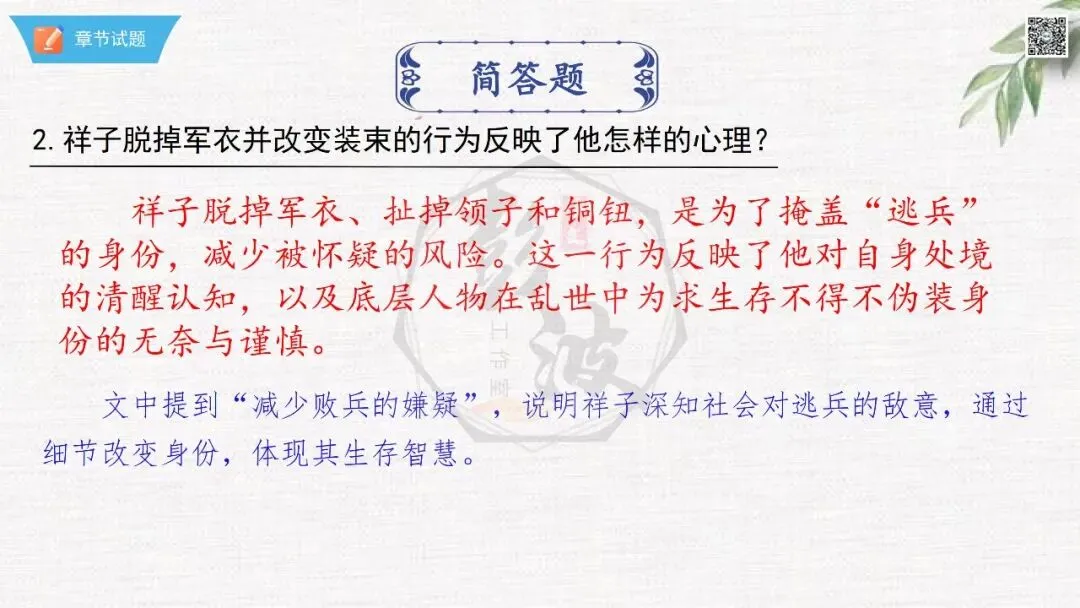 章节试题
简答题
2.祥子脱掉军衣并改变装束的行为反映了他怎样的心理？
祥子脱掉军衣、扯掉领子和铜钮，是为了掩盖“逃兵”
的身份，减少被怀疑的风险。这一行为反映了他对自身处境
的清醒认知，以及底层人物在乱世中为求生存不得不伪装身
份的无奈与谨慎。
文中提到“减少败兵的嫌疑”，说明祥子深知社会对逃兵的敌意，通过
细节改变身份，体现其生存智慧。
工作室
波